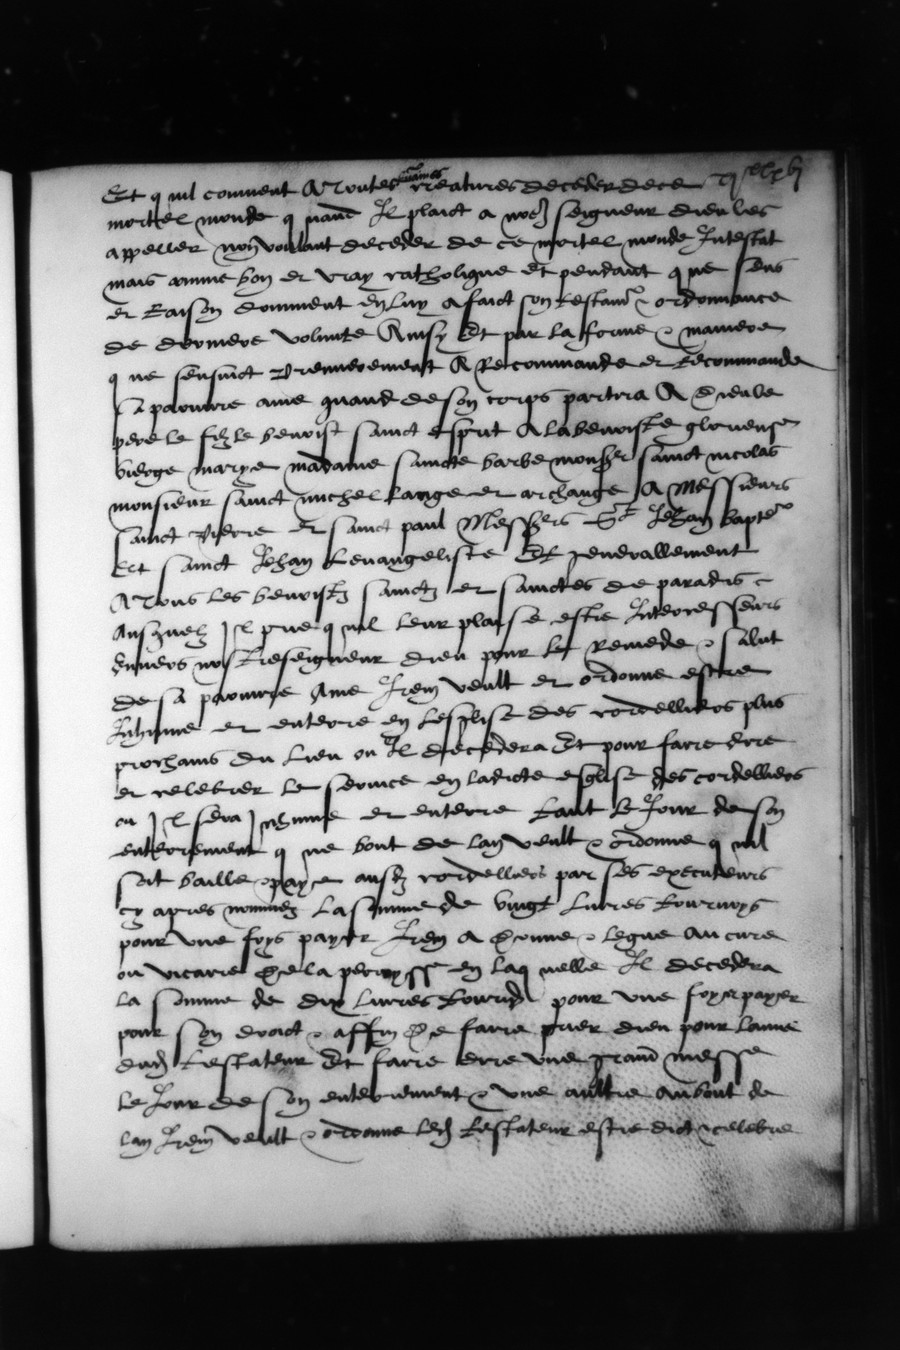 Et quil convient A Toutes humaines creatures deceder de ce
mortel monde quand Il plaict a nred seigneur dieu les
appeller non Voullant deceder de ce mortel monde Intestat
mais comme bon et vray catholique Et pendant que sens
et Raison dominent en luy a faict son testamt & ordonnance
de derniere volunte Ainsy Et par la forme & maniere
que sensuict Premierement A Recommande et Recommande
sa pauvre ame quand de son corps partira A Dieu le
pere le filz le benoist sainct esprit A la benoiste glorieuse
vierge marye madame saincte barbe monsr sainct nicolas
monsieur sainct michel lange et archange A Messieurs
sainct Pierre et sainct paul Messrs St Jehan baptte
Et sainct Jehan Levangeliste Et generallement
A Tous les benoistz sainctz et sainctes de paradis
Ausquelz Il prie quil leur plaise estre Intercesseurs
Envers nostre seigneur dieu pour le Remede & salut
de sa pauvre Ame Item veult et ordonne estre
Inhume et enterre en leglise des cordelliers plus
prochains du Lieu ou Il decedera Et pour faire dire
et celebrer le service en ladicte esglise des cordelliers
ou Il sera Inhume et enterre tant le Jour de son
enterrement que au bout de lan veult & ordonne quil
soit baille & paye ausdz cordelliers par ses executeurs
cy apres nommez La somme de vingt Livres tournoys
pour une foys payer Item A Donne & legue Au cure
ou vicaire De la perroysse en laquelle Il decedera
la somme de dix Livres tourn pour une foys payer
pour son droict & affin De faire prier dieu pour lame
dud testateur Et faire dire une grand messe
le Jour de son enterrement & une aultre au bout de
lan Item veult & ordonne led testateur estre dict & celebre